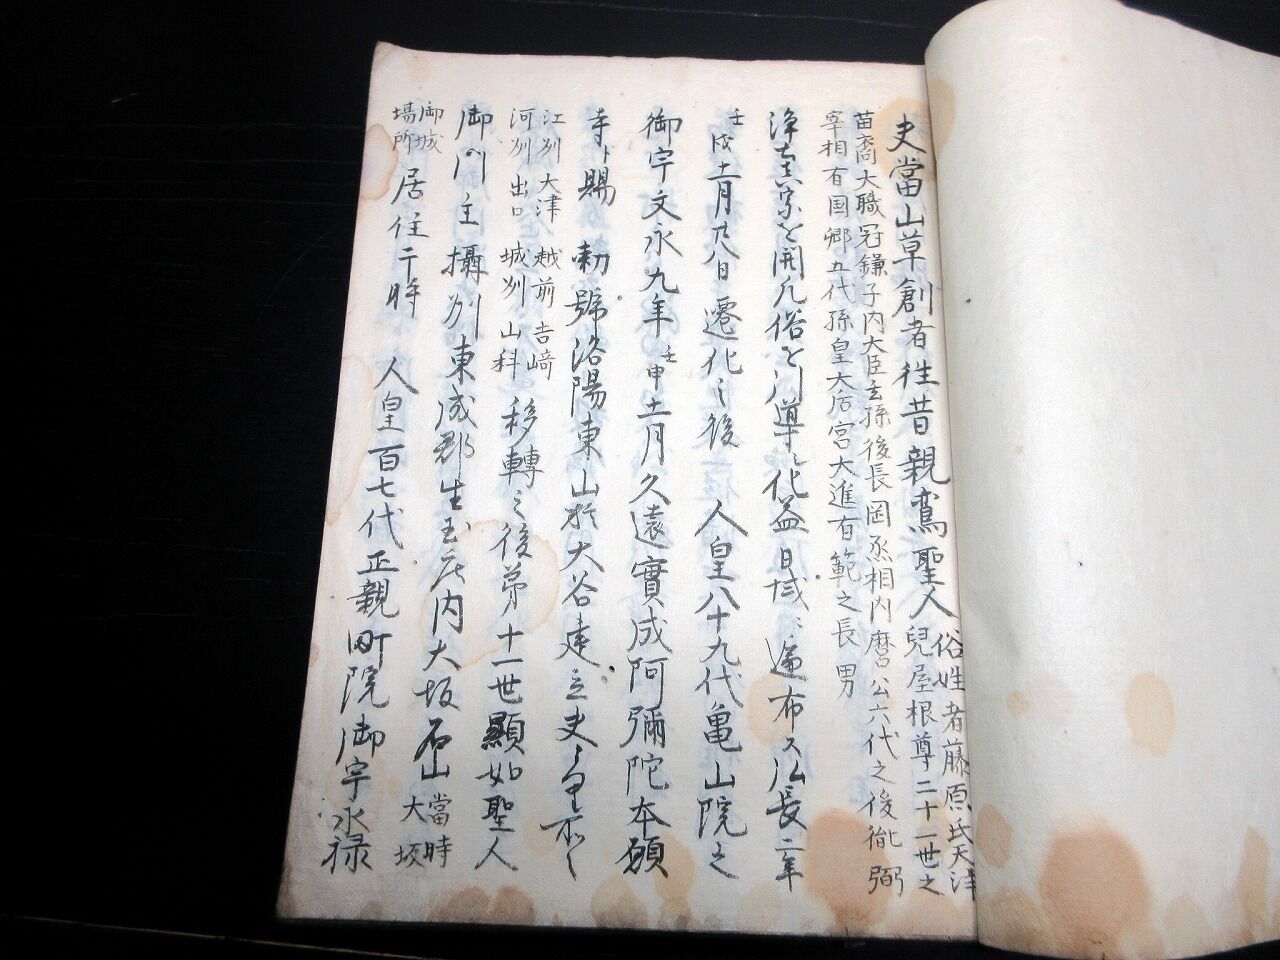 夫當山草創者往昔親鸞聖人
俗姓者藤原氏天津
兒屋根尊二十一世之
苗裔大職冠鎌子内大臣玄孫後長岡丞相内麿公六代之後胤弼
宰相有国卿五代孫皇太后宮大進有範之長男
浄真宗を開凡俗を引導シ化益日域ニ遍布ス弘長二年
壬戌十一月廿八日遷化之後 人皇八十九代亀山院之
御宇文永九年壬申十一月久遠實成阿彌陀本願
寺ト賜 勅號洛陽東山於大谷建立夫ゟ
江刕大津 越前吉﨑
河刕出口 城刕山科
移轉之後第十一世顯如聖人
御門主攝刕東成郡生玉庄内大坂石山
當時
大坂
御城
場所
居住于時 人皇百七代正親町院御宇永禄